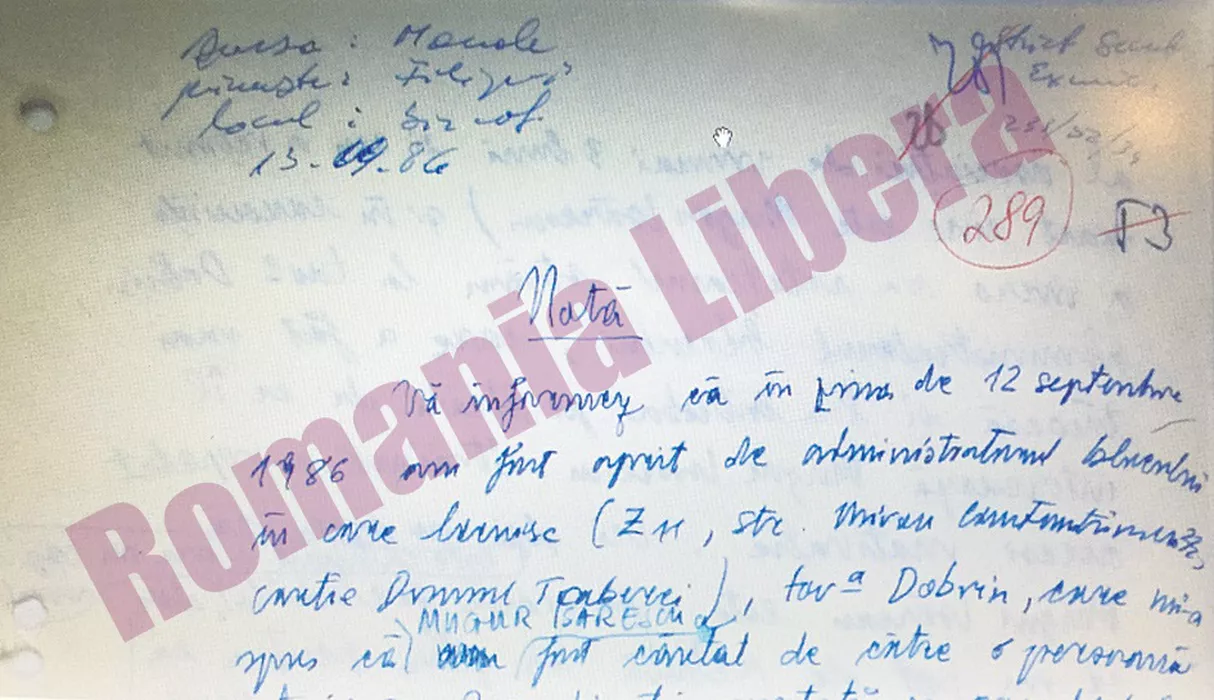 Sursa : Manole
primește : Filipescu
local : Birof.
13.09.86
Strict Secret
Ex. unic
26
289
T3
Notă
Vă informez că în ziua de 12 septembrie
1986 am fost oprit de administratorul blocului
în care locuiesc (Z 11, str. Miron Constantinescu,
cartier Drumul Taberei), tov.ª Dobrin, care mi-a
MUGUR ISARESCU
spus că am fost căutat de către o persoană
Romania Libera